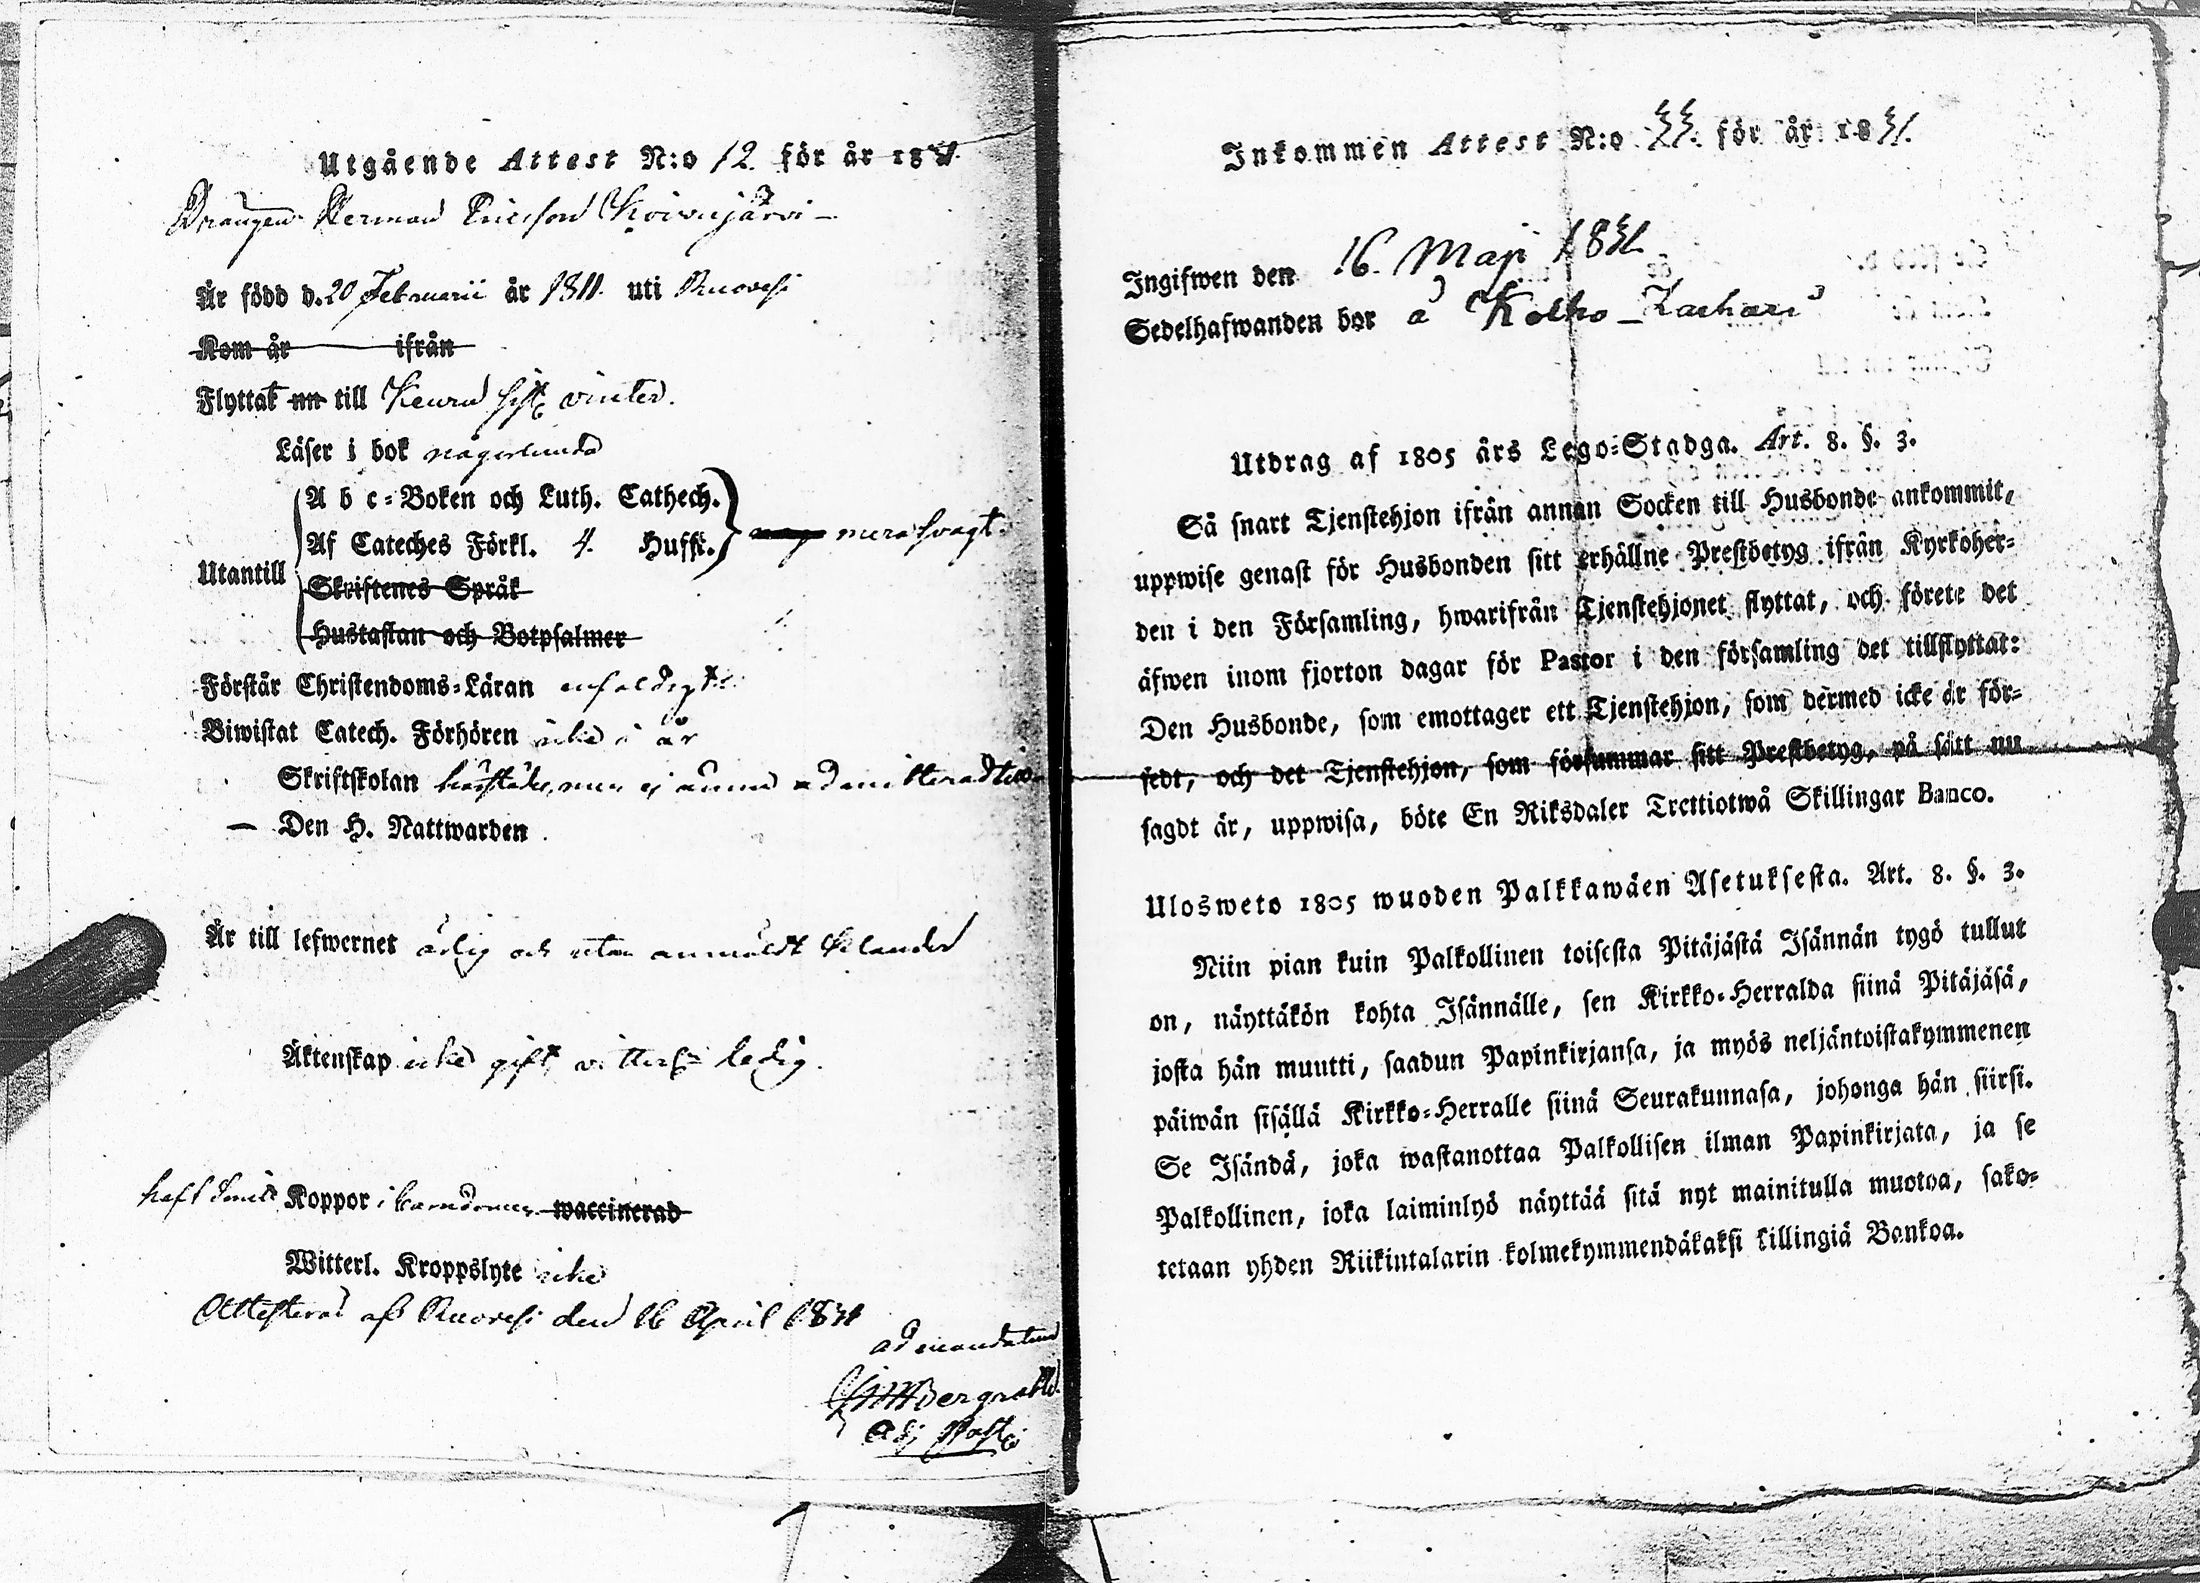 Utgående Attest N:o 12. för år 1831.
Drängen Herman Ericsson Koivujärvi
Är född d. 20 Februarii år 1811. uti Ruovesi
Kom år ifrån
Flyttat nu till Keuru sistl. vinter.
Läser i bok någorlunda
A b c-Boken och Luth. Cathech.
Af Cateches Förkl. 4. Hufst. mera svagt.
Utantill
Skriftenes Språk
Hustaflan och Botpsalmer
Förstår Christendoms-Läran enfaldigt
Biwistat Catech. Förhören icke i år
Skriftskolan härstädes, men ej ännu admitterad till
— Den H. Nattwarden.
Är till lefwernet ärlig och utan anmäldt klander
Äktenskap icke gift, vitterl. ledig.
haft Smit Koppor i barndomen waccinerad
Witterl. Kroppslyte icke
Attesteras af Ruovesi den 16 April 1831
ad mandatum
Bergroth
Adj. Past.
Inkommen Attest N:o 33. för år 1831.
Ingifwen den 16. Maji 1831.
Sedelhafwanden bor å Kolho Zachari
Utdrag af 1805 års Lego-Stadga. Art. 8. §. 3.
Så snart Tjenstehjon ifrån annan Socken till Husbonde ankommit,
uppwise genast för Husbonden sitt erhållne Prestbetyg ifrån Kyrkoher-
den i den Församling, hwarifrån Tjenstehjonet flyttat, och förete det
äfwen inom fjorton dagar för Pastor i den församling det tillflyttat:
Den Husbonde, som emottager ett Tjenstehjon, som dermed icke är för-
sedt, och det Tjenstehjon, som försummar sitt Prestbetyg, på sätt nu
sagdt är, uppwisa, böte En Riksdaler Trettiotwå Skillingar Banco.
Ulosweto 1805 wuoden Palkkawäen Asetuksesta. Art. 8. §. 3.
Niin pian kuin Palkollinen toisesta Pitäjästä Isännän tygö tullut
on, näyttäkön kohta Isännälle, sen Kirkko-Herralda siinä Pitäjäsä,
josta hän muutti, saadun Papinkirjansa, ja myös neljäntoistakymmenen
päiwän sisällä Kirkko-Herralle siinä Seurakunnasa, johonga hän siirsi.
Se Isändä, joka wastanottaa Palkollisen ilman Papinkirjata, ja se
Palkollinen, joka laiminlyö näyttää sitä nyt mainitulla muotoa, sako-
tetaan yhden Riikintalarin kolmekymmendäkaksi killingiä Bankoa.